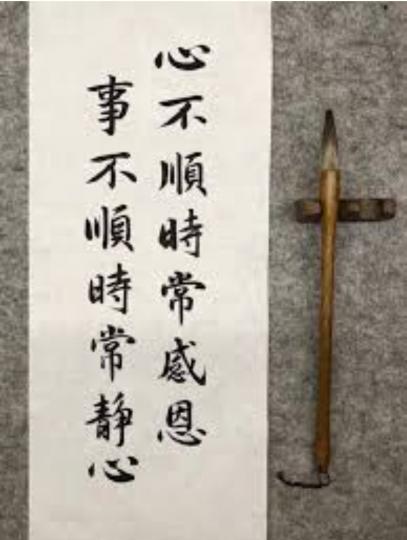 心不順時常感恩
事不順時常靜心